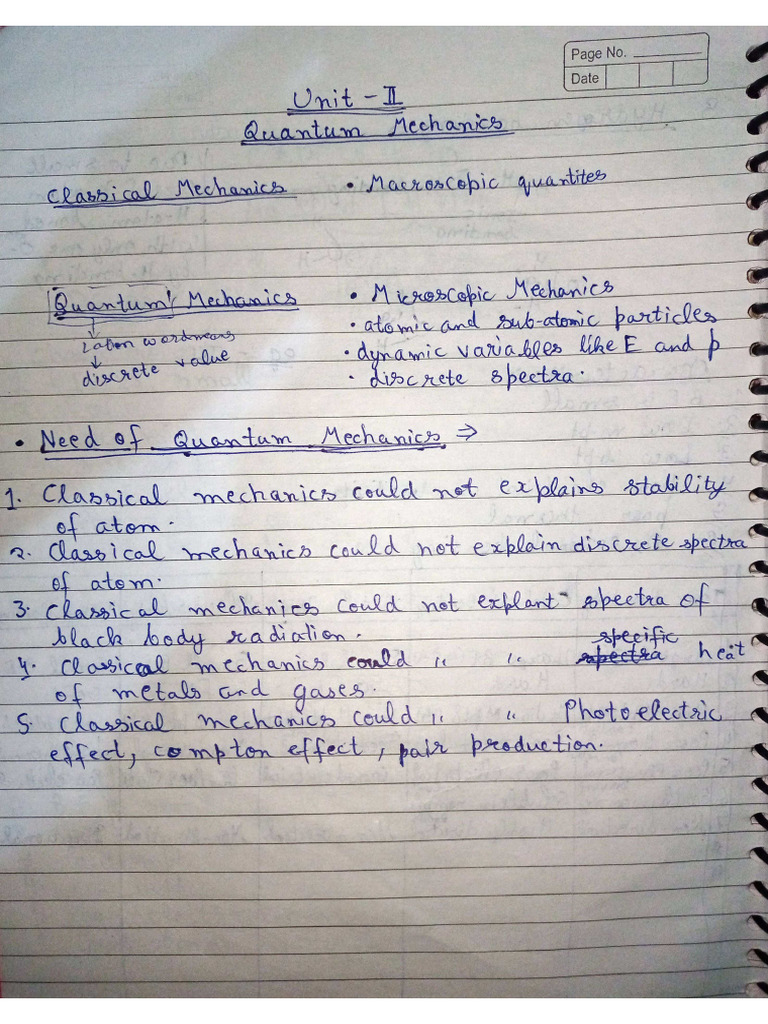 Page No.
Date
Unit - II
Quantum Mechanics
Classical Mechanics • Macroscopic quantites
Quantum Mechanics • Microscopic Mechanics
• atomic and sub-atomic particles
Laton word means
• dynamic variables like E and p
discrete value
• discrete spectra.
• Need of Quantum Mechanics ⇒
1. Classical mechanics could not explains stability
of atom.
2. Classical mechanics could not explain discrete spectra
of atom.
3. Classical mechanics could not explant spectra of
black body radiation.
specific
4. Classical mechanics could " " spectra heat
of metals and gases.
5. Classical mechanics could " " Photoelectric
effect, compton effect, pair production.